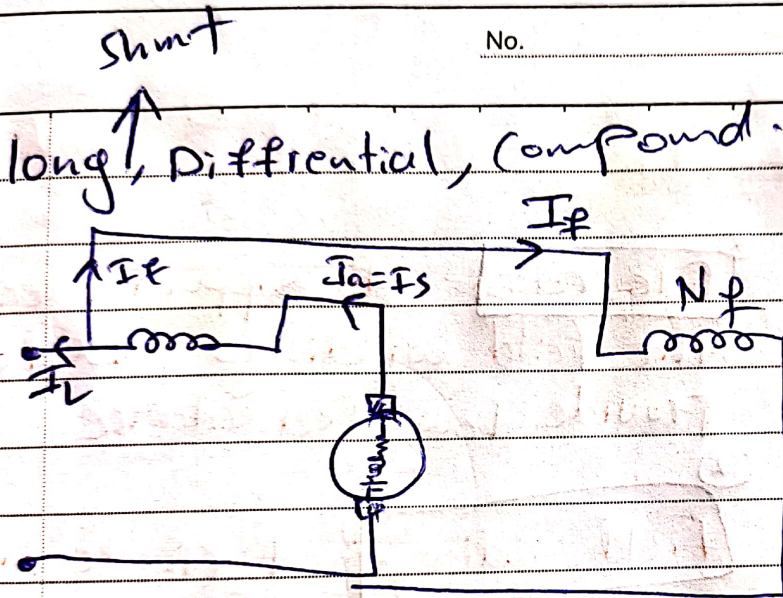 shunt
No.
long, Diffrential, Compound.
If
If
Ia=Is
Nf
IL